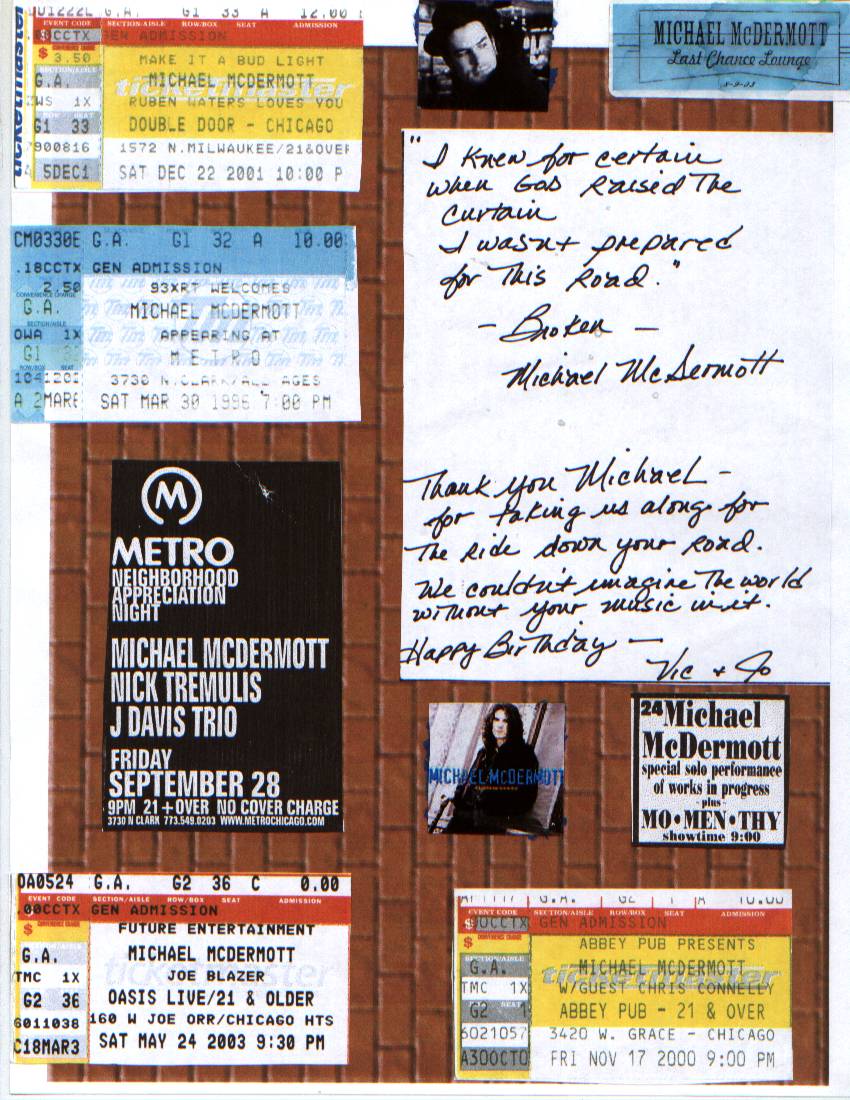 G.A. 33 A 12.00
EVENT CODE SECTION/AISLE ROW/BOX SEAT ADMISSION
GEN ADMISSION
$ 3.50 MAKE IT A BUD LIGHT
G.A. MICHAEL MCDERMOTT
ticketmaster
1X RUBEN WATERS LOVES YOU
G1 33 DOUBLE DOOR - CHICAGO
900816 1572 N.MILWAUKEE/21&OVER
5DEC1 SAT DEC 22 2001 10:00 P
MICHAEL McDERMOTT
Last Chance Lounge
CM0330E G.A. G1 32 A 10.00
.18CCTX GEN ADMISSION
2.50 93XRT WELCOMES
CONVENIENCE CHARGE
G.A. MICHAEL MCDERMOTT
SECTION/AISLE
OWA 1X APPEARING AT
G1 METRO
ROW/BOX SEAT
1041202 3730 N.CLARK/ALL AGES
A 2MARE SAT MAR 30 1996 7:00 PM
"I knew for certain
when God Raised The
Curtain
I wasn't prepared
for This Road."
- Broken -
Michael McDermott
Thank you Michael -
for taking us along for
The Ride down your Road.
We couldn't imagine The world
without your music in it.
Happy Birthday -
Vic + Jo
M
METRO
NEIGHBORHOOD
APPRECIATION
NIGHT
MICHAEL MCDERMOTT
NICK TREMULIS
J DAVIS TRIO
FRIDAY
SEPTEMBER 28
9PM 21+OVER NO COVER CHARGE
3730 N CLARK 773.549.0203 WWW.METROCHICAGO.COM
MICHAEL MCDERMOTT
24 Michael
McDermott
special solo performance
of works in progress
- plus -
MO•MEN•THY
showtime 9:00
OA0524 G.A. G2 36 C 0.00
EVENT CODE SECTION/AISLE ROW/BOX SEAT ADMISSION
.00CCTX GEN ADMISSION
$ FUTURE ENTERTAINMENT
G.A. MICHAEL MCDERMOTT
ticketmaster
TMC 1X JOE BLAZER
G2 36 OASIS LIVE/21 & OLDER
6011038 160 W JOE ORR/CHICAGO HTS
C18MAR3 SAT MAY 24 2003 9:30 PM
G.A. G2 A 10.00
EVENT CODE SECTION/AISLE ROW/BOX SEAT ADMISSION
GEN ADMISSION
$ ABBEY PUB PRESENTS
SECTION/AISLE
G.A. MICHAEL MCDERMOTT
ticketmaster
TMC 1X W/GUEST CHRIS CONNELLY
G2 ABBEY PUB - 21 & OVER
6021057 3420 W. GRACE - CHICAGO
A300CTO FRI NOV 17 2000 9:00 PM